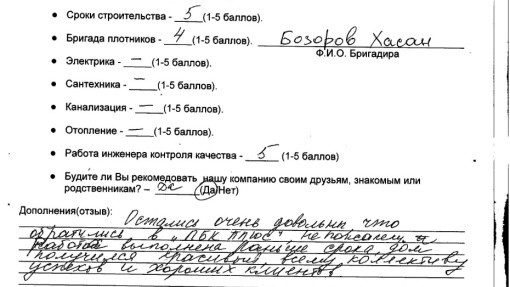 • Сроки строительства - 5 (1-5 баллов).
• Бригада плотников - 4 (1-5 баллов). Бозоров Хасан
Ф.И.О. Бригадира
• Электрика - — (1-5 баллов).
• Сантехника - — (1-5 баллов).
• Канализация - — (1-5 баллов).
• Отопление - — (1-5 баллов).
• Работа инженера контроля качества - 5 (1-5 баллов)
• Будите ли Вы рекомедовать нашу компанию своим друзьям, знакомым или
родственникам? – Да (Да/Нет)
Дополнения(отзыв): Остались очень довольны что
обратились в "ПБК ПЛЮС" не пожалели
Работа выполнена раньше срока, дом
получился красивый всему коллективу
успехов и хороших клиентов